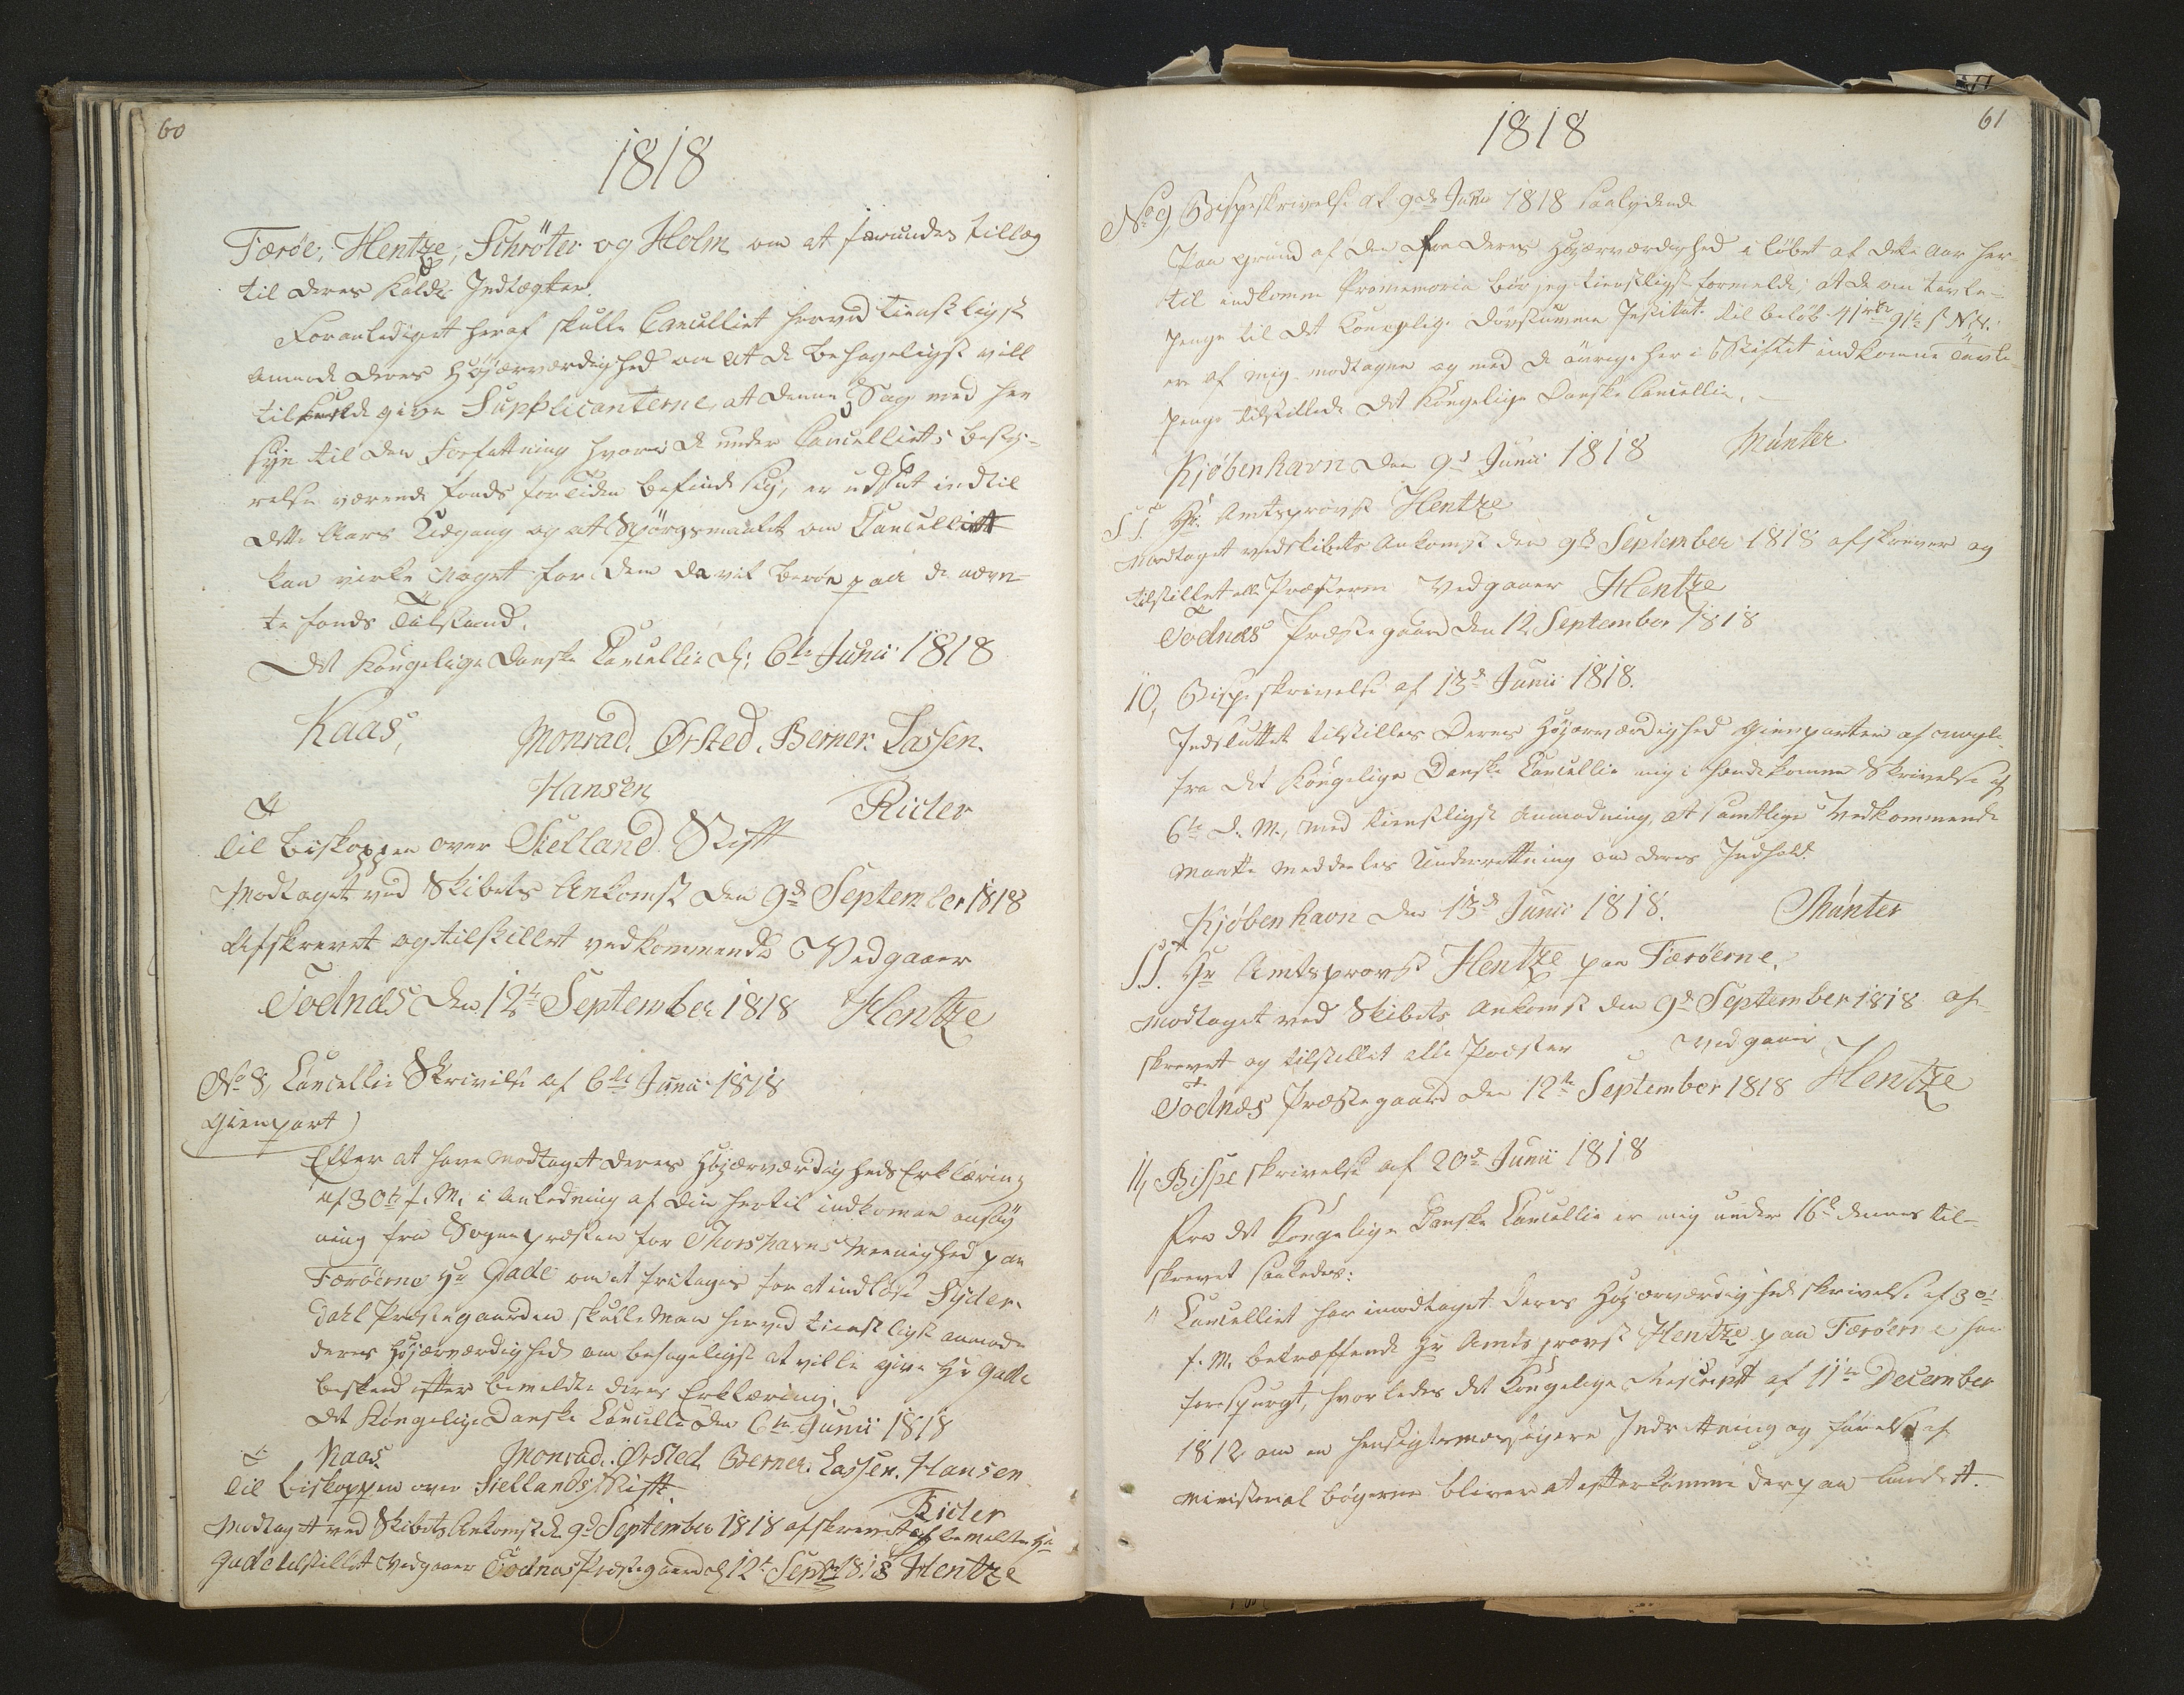 60
1818
Færöe, Hentze, Schröter og Holm om at forundes Tillæg
til deres Kalds Indtægter.
Foranlediget heraf skulle Cancelliet herved tienstligst
anmode Deres Höjærværdighed om at De behageligst vill
tilkiende give Supplicanterne, at denne Sag med hen
syn til den Forfatning hvori de under Cancelliets besty-
relse værende fonds for tiden befinde sig, er udsat indtil
dette Aars Udgang og at Spörgsmaalet om Cancelliet
kan virke Noget for dem da vil beroe paa de nævn-
te fonds Tilstand.
Det Kongelige Danske Cancellie d: 6te Junii 1818
Kaas,
Monrad. Ørsted. Berner. Lassen.
Hansen
Ricter
Til Biskoppen over Siellands Stift
Modtaget ved Skibets Ankomst den 9de September 1818
Afskrevet og tilstillet vedkommende Vedgaaer
Todnæs den 12te September 1818 Hentze
No 8, Cancellie Skrivelse af 6te Junii 1818
Gienpart)
Efter at have modtaget Deres Höjærværdigheds Erklæring
af 30te f. M. i Anledning af den hertil indkomne ansög
ning fra Sognepræsten for Thorshavns Meenighed paa
Færöerne Hr Gade om at fritages for at indlöse Syder-
dahl Præstegaarden skulle Man herved tienstligst anmode
Deres Höjærværdighed om behageligst at ville give Hr Gade
beskeed efter bemeldte Deres Erklæring.
Det Kongelige Danske Cancellie den 6te Junii 1818
Kaas. Monrad. Ørsted. Berner. Lassen. Hansen
Til Biskoppen over Siellands Stift.
Ricter
Modtaget ved Skibets Ankomst d. 9de September 1818 afskrevet og bemeldte Hr
Gade tilstillet Vedgaaer Todnæs Præstegaard d 12te Septbr 1818 Hentze
61
1818
No 9, Bispeskrivelse af 9de Junii 1818 saalydende
Paa grund af den fra Deres Höjærværdighed i löbet af dette Aar her-
til indkomne Promemoria bör jeg tienstligst formelde, at de om Tavle-
penge til det Kongelige Dövstumme Institut til belöb 41 rbd 91 s N.V.
ere af mig modtagne og med de övrige her i Stiftet indkomne Tavle
penge tilstillede det Kongelige Danske Cancellie.
Kjöbenhavn den 9de Junii 1818 Münter
S. T. Hr. Amtsprovst Hentze
Modtaget ved Skibets Ankomst den 9de September 1818 afskrevet og
tilstillet alle Præsterne Vedgaaer Hentze
Todnæs Præstegaard den 12 September 1818
10, Bispeskrivelse af 13de Junii 1818.
Indsluttet tilstilles Deres Höjærværdighed Gienparten af
fra det Kongelige Danske Cancellie mig i hænde komne Skrivelse af
6te d. M., med tienstligst Anmodning, at samtlige Vedkommende
maatte meddeeles Underretning om deres Indhold.
Kjöbenhavn den 13de Junii 1818. Münter
S. T. Hr Amtsprovst Hentze paa Færöerne.
Modtaget ved Skibets Ankomst den 9de September 1818 af-
skrevet og tilstillet alle Præster Vedgaaer
Todnæs Præstegaard den 12te September 1818 Hentze
11, Bispeskrivelse af 20de Junii 1818
Fra det Kongelige Danske Cancellie er mig under 16de dennes til-
skrevet saaledes:
" Cancelliet har modtaget Deres Höjærværdigheds skrivelse af 30te
f. M. betræffende Hr Amtsprovst Hentze paa Færöerne har
forespurgt, hvorledes det Kongelige Rescript af 11te December
1812 om en hensigtsmæssigere Indretning og förelse af
Ministerial bögerne bliver at efterkomme der paa Landet.